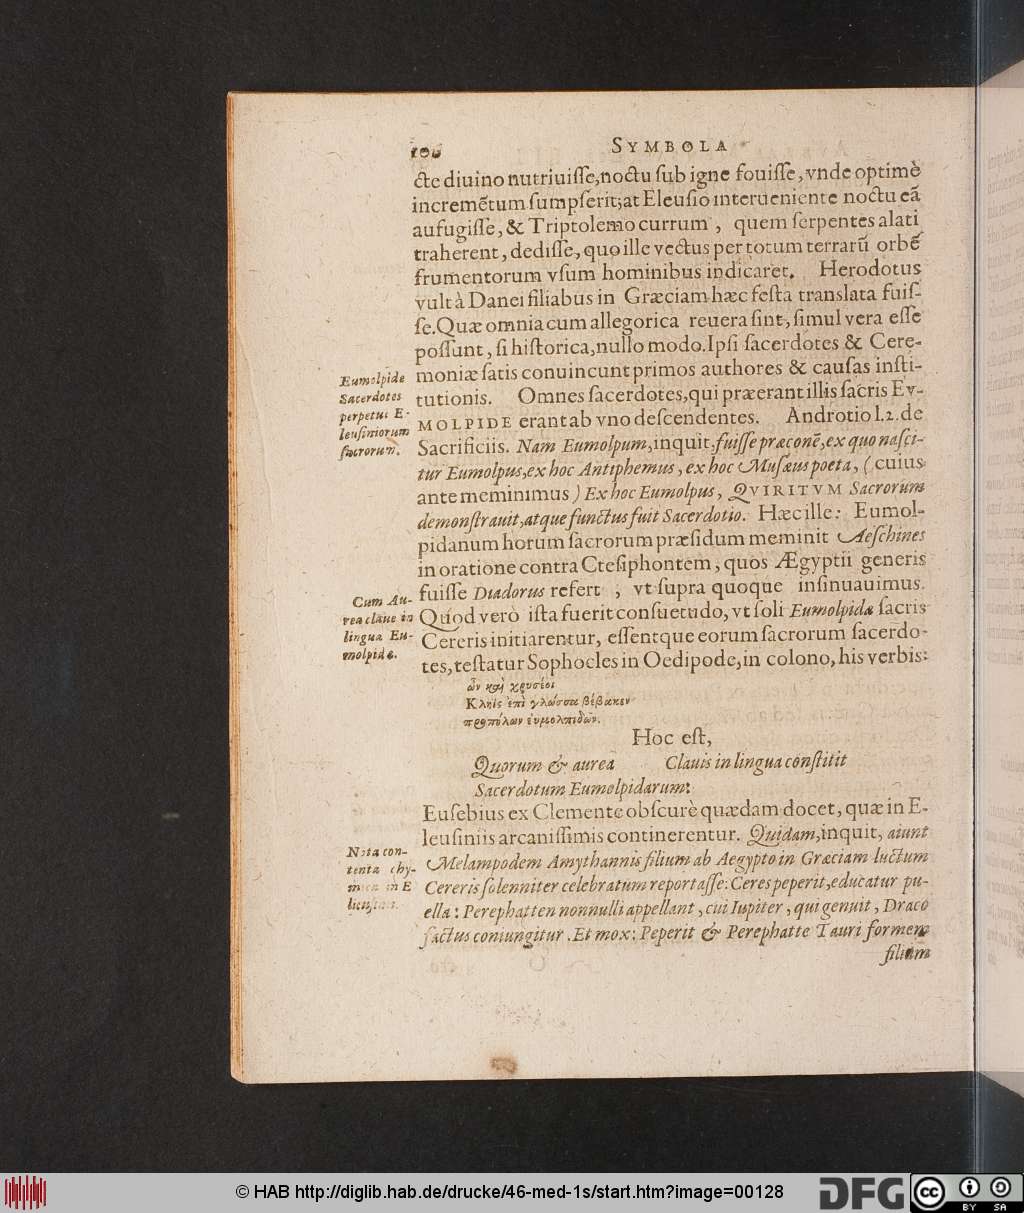 100 SYMBOLA
cte diuino nutriuisse, noctu sub igne fouisse, vnde optimè
incremẽtum sumpserit; at Eleusio interueniente noctu eã
aufugisse, & Triptolemo currum, quem serpentes alati
traherent, dedisse, quo ille vectus per totum terrarũ orbẽ
frumentorum vsum hominibus indicaret. Herodotus
vult à Danei filiabus in Græciam hæc festa translata fuis-
se. Quæ omnia cum allegorica reuera sint, simul vera esse
possunt, si historica, nullo modo. Ipsi sacerdotes & Cere-
moniæ satis conuincunt primos authores & causas insti-
tutionis. Omnes sacerdotes, qui præerant illis sacris EV-
MOLPIDE erant ab vno descendentes. Androtio l. 2. de
Sacrificiis. Nam Eumolpum, inquit, fuisse præconẽ, ex quo nasci-
tur Eumolpus, ex hoc Antiphemus, ex hoc Musæus poeta, (cuius
ante meminimus) Ex hoc Eumolpus, QVIRITVM Sacrorum
demonstrauit, atque functus fuit Sacerdotio. Hæc ille: Eumol-
pidanum horum sacrorum præsidum meminit Aeschines
in oratione contra Ctesiphontem, quos Ægyptii generis
fuisse Diadorus refert, vt supra quoque insinuauimus.
Quod verò ista fuerit consuetudo, vt soli Eumolpidæ sacris
Cereris initiarentur, essentque eorum sacrorum sacerdo-
tes, testatur Sophocles in Oedipode, in colono, his verbis:
ὧν καὶ χρυσέοι
Κληὶς ἐπὶ γλώσσα βέβακεν
προπόλων εὐμολπιδῶν.
Hoc est,
Quorum & aurea Clauis in lingua constitit
Sacerdotum Eumolpidarum:
Eusebius ex Clemente obscurè quædam docet, quæ in E-
leusiniis arcanissimis continerentur. Quidam, inquit, aiunt
Melampodem Amythannis filium ab Aegypto in Græciam luctum
Cereris solenniter celebratum reportasse: Ceres peperit, educatur pu-
ella: Perephatten nonnulli appellant, cui Iupiter, qui genuit, Draco
factus coniungitur. Et mox: Peperit & Perephatte Tauri formem
filium
Eumolpide
Sacerdotes
perpetui E-
leusiniorum
sacrorum.
Cum Au-
rea claue in
lingua Eu-
molpidæ.
Nota con-
tenta chy-
mica in E
lieusiniis.
© HAB http://diglib.hab.de/drucke/46-med-1s/start.htm?image=00128
DFG
cc
BY SA